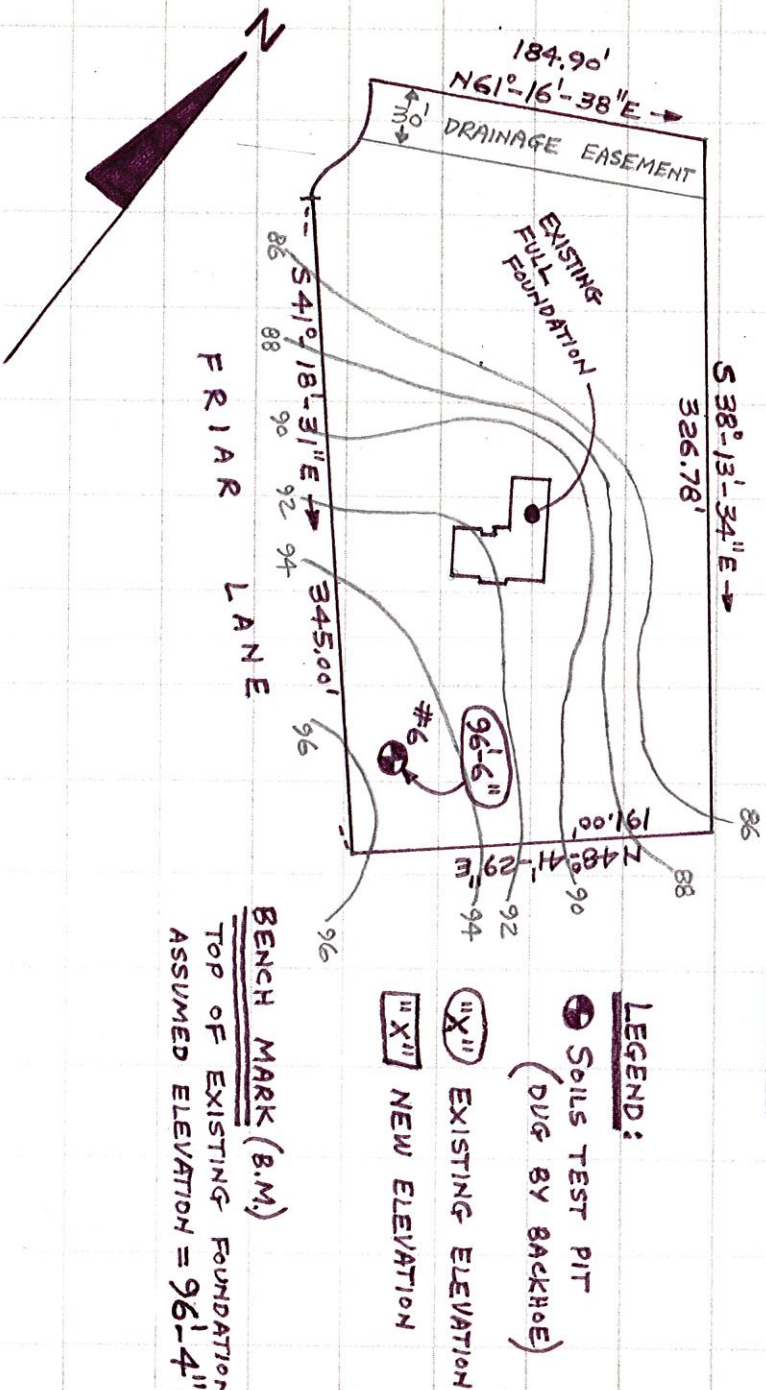 N
184.90'
N61°-16'-38"E →
30'
DRAINAGE EASEMENT
EXISTING
FULL
FOUNDATION
S 38°-13'-34"E →
326.78'
S 41°-18'-31"E → 345.00'
FRIAR LANE
86
88
90
92
94
96
#6
96'-6"
191.00'
N48°-41'-29"E
86
88
90
92
94
96
LEGEND:
SOILS TEST PIT
(DUG BY BACKHOE)
"X" EXISTING ELEVATION
"X" NEW ELEVATION
BENCH MARK (B.M.)
TOP OF EXISTING FOUNDATION
ASSUMED ELEVATION = 96'-4"